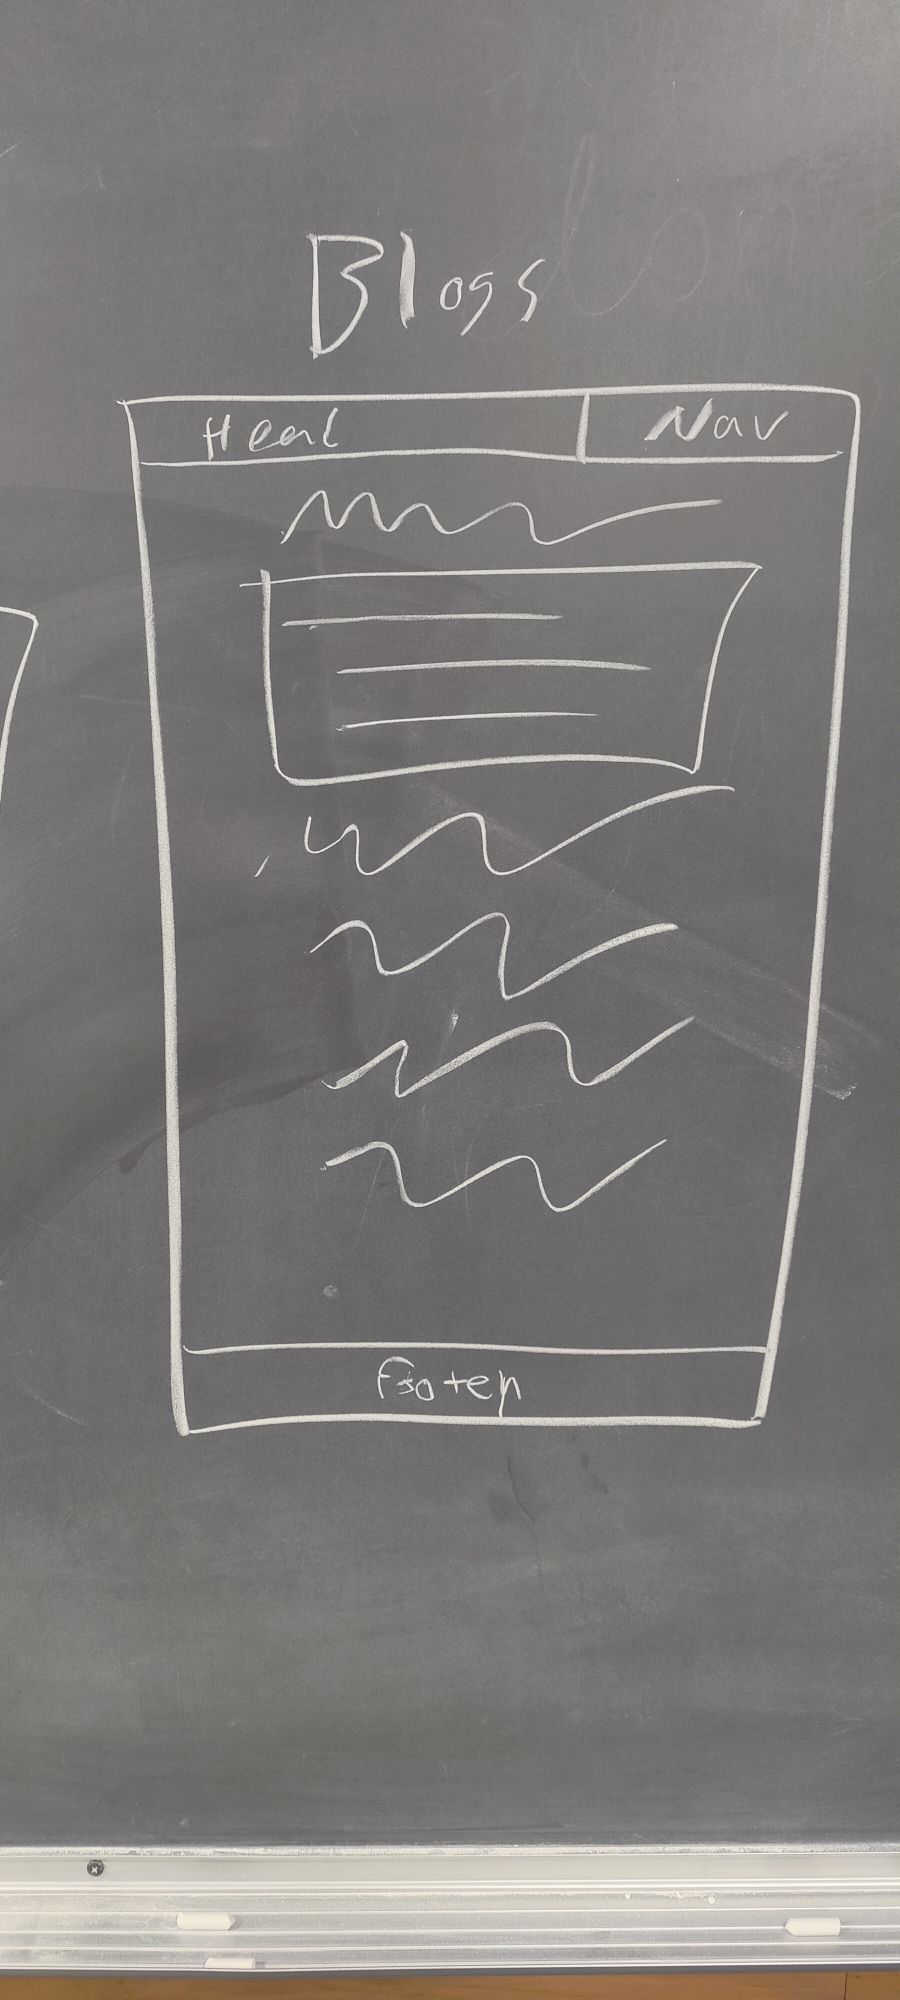 Blogs
Head Nav
Footer